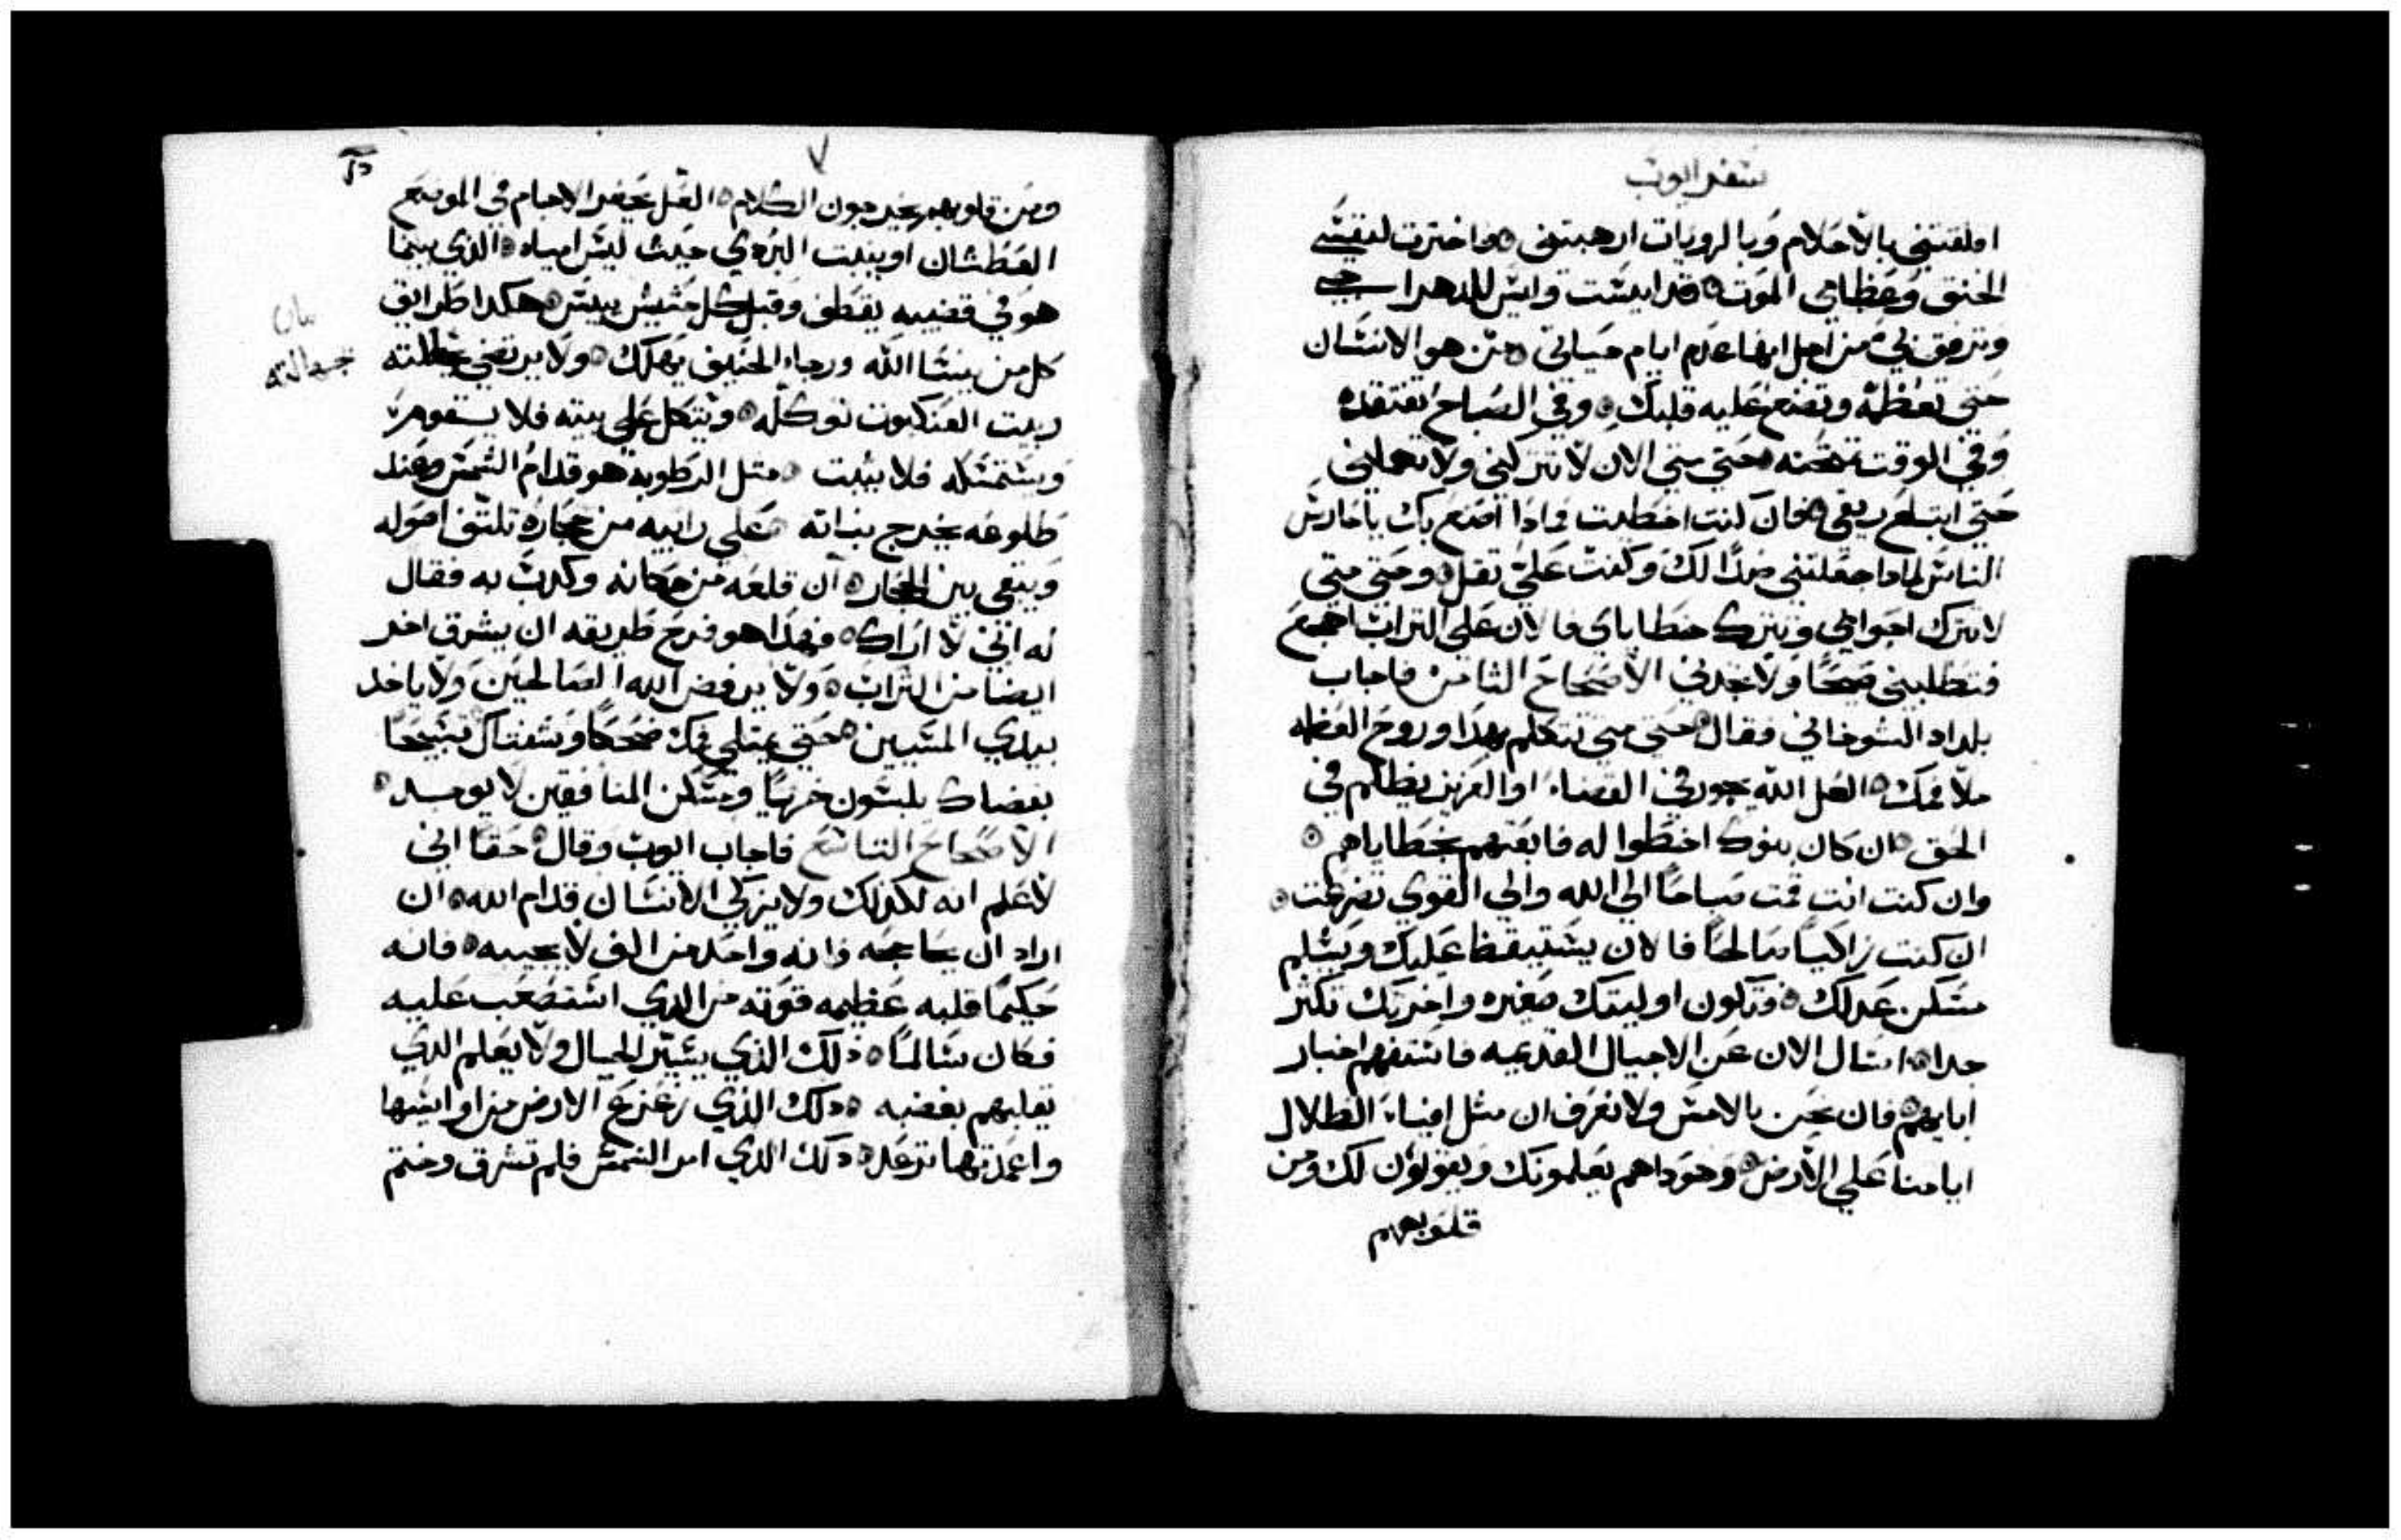 سفر ايوب
اقلقتني بالاحلام وبالرويات ارهبتني ه واخترت لنفسي
الخنق وعظامي الموت ه قد ايست وليس للدهر احيي
وترفق بي من اجل انها عدم ايام حياتي ه من هو الانسان
حتي تعظمه وتضع عليه قلبك ه وفي الصباح تفتقده
وفي الوقت تمتحنه ه حتي متي الان لا تتركني ولا تهملني
حتي ابتلع ريقي ه فان كنت اخطيت فماذا اصنع بك يا حارس
الناس لماذا جعلتني ضدا لك وكنت علي ثقل ه وحتي متي
لا تترك اجوالي وتترك خطاياي فالان علي التراب اضجع
فتطلبني صبحا ولا تجدني الاصحاح الثامن فاجاب
بلداد الشوحاني فقال ه حتي متي تتكلم بهذا وروح العظمه
ملا فمك ه العل الله يجور في القضاء او العزيز يظلم في
الحق ه ان كان بنوك اخطوا له فابقتهم بخطاياهم ه
وان كنت انت قمت صباحا الي الله والي القوي تضرعت ه
ان كنت زاكيا صالحا فالان يستيقظ عليك ويسلم
مسكن عدلك ه وتكون اوليتك صغيره واخريتك تكثر
جدا ه اسال الان عن الاجيال القديمه فاستفهم اخبار
ابايهم ه فان نحن بالامس ولا نعرف ان مثل افياء الظلال
ايامنا علي الارض ه وهوداهم يعلمونك ويقولون لك ومن
قلوبهم
ومن قلوبهم يخرجون الكلام ه العل يخضر الاجام في الموضع
العطشان او ينبت البردي حيث ليس امياه ه الذي بينما
هو في قضيبه يقطف وقبل كل حشيش ييبس ه هكدا طرايق
كل من ينسا الله ورجاء الحنيف يهلك ه ولا يرتضي بجهالته
بيت العنكبوت توكله ه ويتكل علي بيته فلا يستقوم
ويستمسكه فلا يثبت ه مثل الرطوبه هو قدام الشمس وعند
طلوعه يخرج نباته ه علي رابيه من حجاره تلتف اصوله
ويبقي بين الحجاره ان قلعه من مكانه وكدب به فقال
له اني لا اراك ه فهدا هو فرح طريقه ان يشرق اخر
ايضا من التراب ه ولا يرفض الله الصالحين ولا ياخد
بيدي المسيين ه حتي يمتلي فمك ضحكا وشفتاك تسبيحا
بغضاك يلبسون خزيا ومسكن المنافقين لا يوجد ه
الاصحاح التاسع فاجاب ايوب وقال ه حقا اني
لاعلم انه لكدلك ولا يزكي الانسان قدام الله ه ان
اراد ان يحاججه فانه واحد من الف لا يجيبه ه فانه
حكيما قلبه عظيمه قوته من الدي استصعب عليه
فكان سالما ه ذلك الذي يسير الجبال ولا يعلم الدي
يقلبهم بغضبه ه دلك الذي زعزع الارض من اواسيها
واعمدتها ترعد ه دلك الدي امر الشمس فلم تشرق وختم